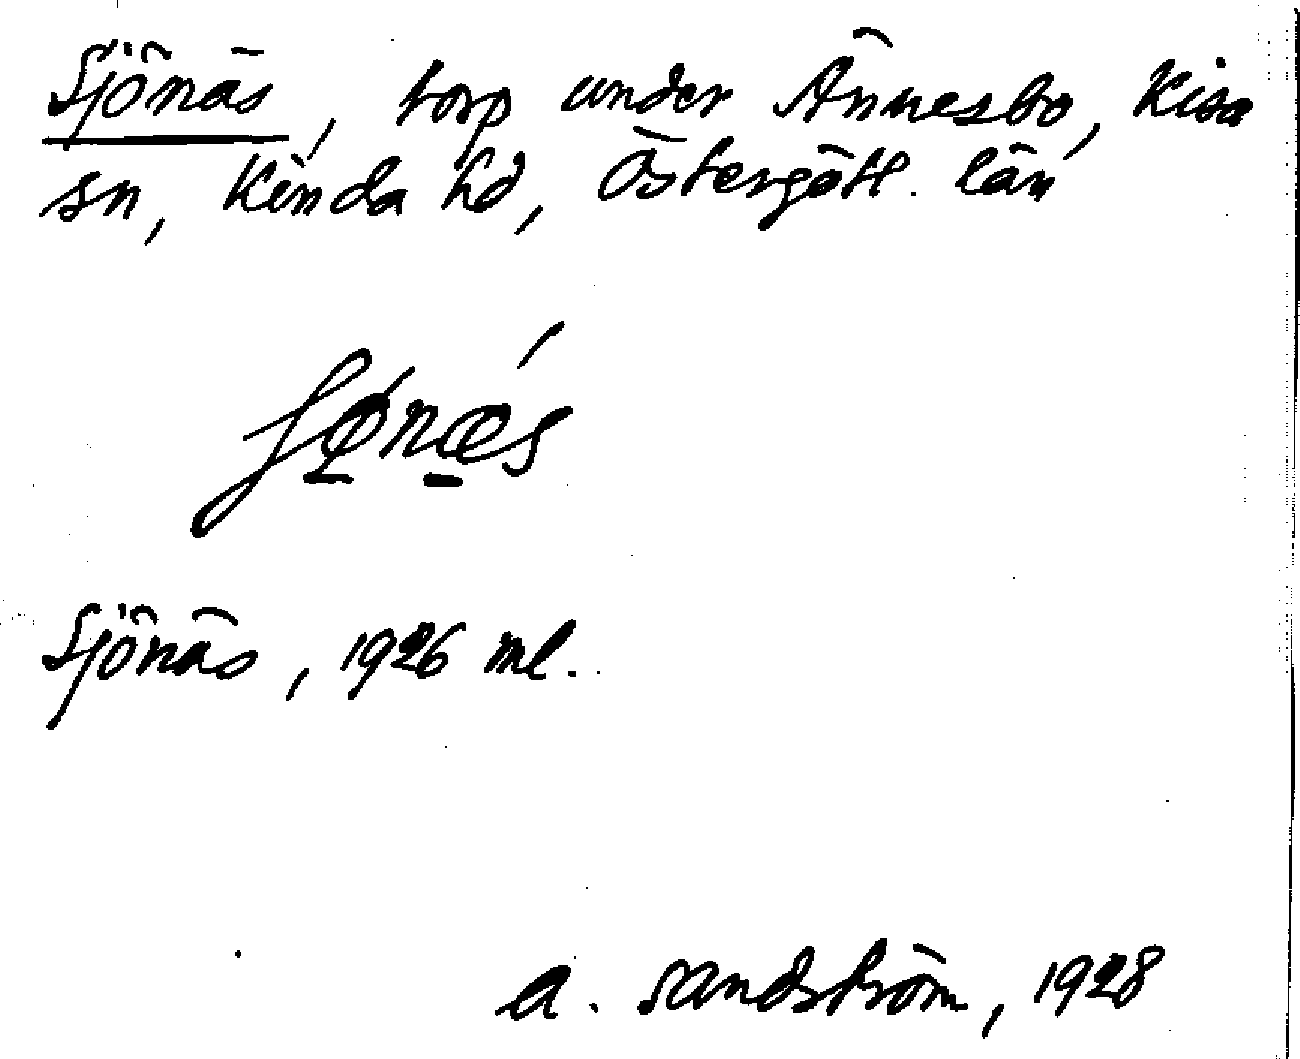 Sjönäs, torp under Ånnesbo, Kisa
sn, Kinda hd, Östergötl. län
Sjönäs, 1926 ml.
A. Sandström, 1928